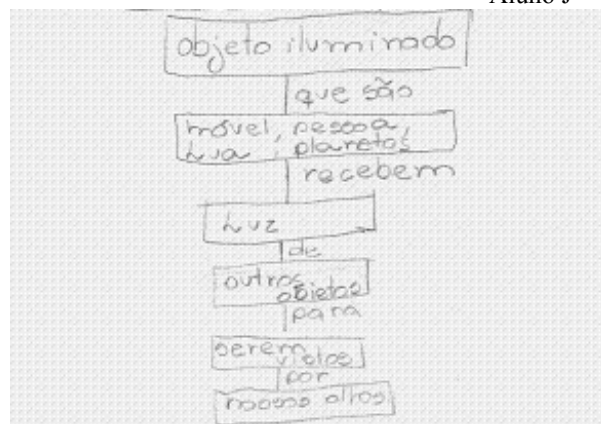 Aluno J
objeto iluminado
que são
móvel, pessoa,
Lua, planetas
recebem
Luz
de
outros
objetos
para
serem
vistos
por
nossos olhos